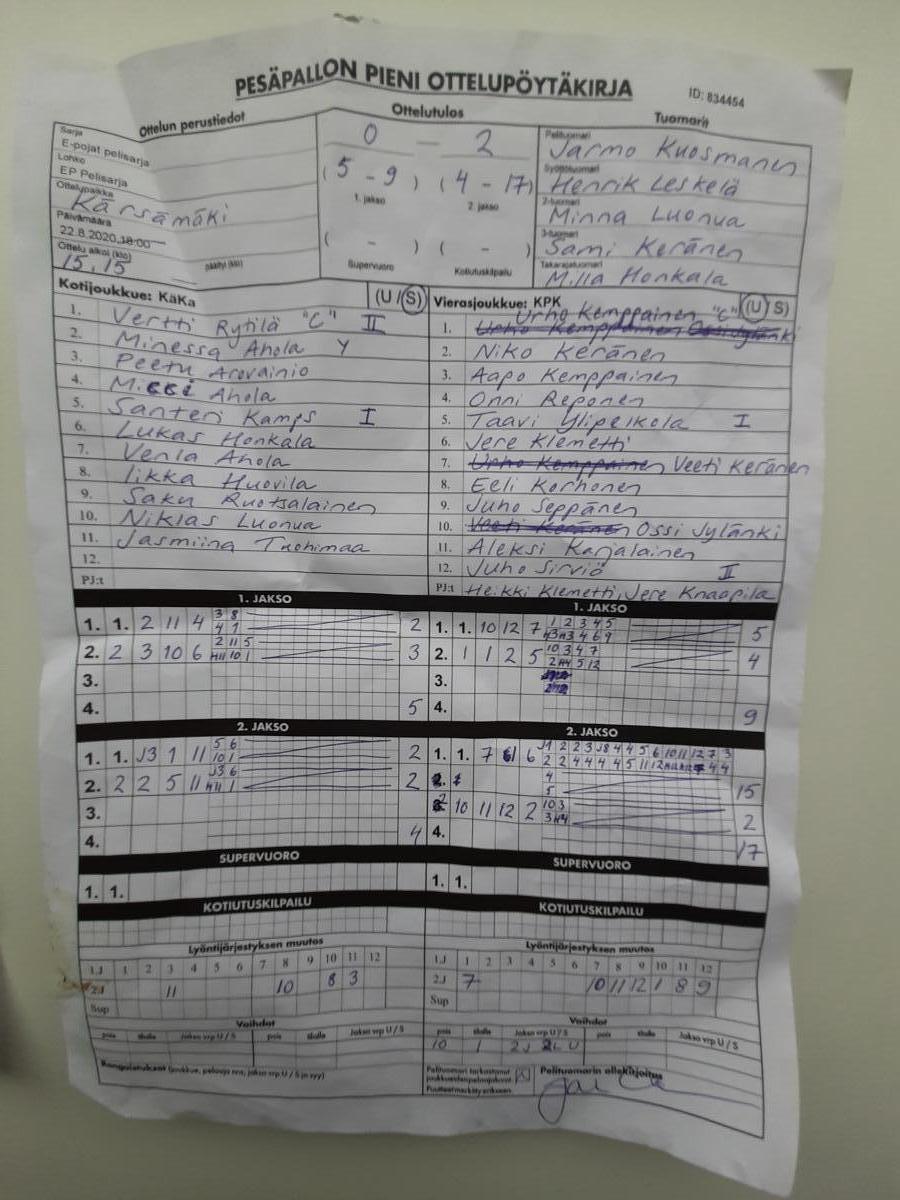 PESÄPALLON PIENI OTTELUPÖYTÄKIRJA
ID: 834454
Ottelun perustiedot
Sarja
E-pojat pelisarja
Lohko
EP Pelisarja
Ottelupaikka
Kärsämäki
Päivämäärä
22.8.2020, 18:00
Ottelu alkoi (klo)
15.15
päättyi (klo)
Ottelutulos
0 - 2
(5 - 9) (4 - 17)
1. jakso 2. jakso
( - ) ( - )
Supervuoro Kotiutuskilpailu
Tuomarit
Pelituomari
Jarmo Kuosmanen
Syöttötuomari
Henrik Leskelä
2-tuomari
Minna Luonua
3-tuomari
Sami Keränen
Takarajatuomari
Milla Honkala
Kotijoukkue: KäKa (U / S)
1. Vertti Rytilä "C" II
2. Minessa Ahola Y
3. Peetu Arovainio
4. Ahola
5. Santeri Kamps I
6. Lukas Honkala
7. Venla Ahola
8. Iikka Huovila
9. Saku Ruotsalainen
10. Niklas Luonua
11. Jasmiina Tuohimaa
12.
PJ:t
Vierasjoukkue: KPK (U / S)
Urho Kemppainen "C"
1. Urho Kemppainen Ossi Jylänki
2. Niko Keränen
3. Aapo Kemppainen
4. Onni Reponen
5. Taavi Ylipelkola I
6. Jere Klemetti
7. Urho Kemppainen Veeti Keränen
8. Eeli Korhonen
9. Juho Seppänen
10. Veeti Keränen Ossi Jylänki
11. Aleksi Karjalainen
12. Juho Sirviö II
PJ:t Heikki Klemetti, Jere Knaapila
1. JAKSO
1. 1. 2 11 4 3 8 2
4 1
2. 2 3 10 6 2 11 5 3
3.
4. 5
1. JAKSO
1. 1. 10 12 7 1 2 3 4 5 5
2. 1 1 2 5 10 3 4 7 4
3.
4. 9
2. JAKSO
1. 1. J3 1 11 5 6 2
10 1
2. 2 2 5 11 J3 6 2
3.
4. 4
2. JAKSO
1. 1. 7 6
15
10 11 12 2 10 3 2
4. 17
SUPERVUORO
1. 1.
SUPERVUORO
1. 1.
KOTIUTUSKILPAILU
KOTIUTUSKILPAILU
Lyöntijärjestyksen muutos
1.J 1 2 3 4 5 6 7 8 9 10 11 12
2.J 11 10 8 3
Sup
Lyöntijärjestyksen muutos
1.J 1 2 3 4 5 6 7 8 9 10 11 12
2.J 7 10 11 12 1 8 9
Sup
Vaihdot
pois tilalle Jakso vrp U / S pois tilalle Jakso vrp U / S
Vaihdot
pois tilalle Jakso vrp U / S pois tilalle Jakso vrp U / S
10 1 2J 2L U
Rangaistukset (joukkue, pelaaja nro, jakso vrp U / S ja syy)
Pelituomari tarkastanut
joukkueiden pelaajakortit X
Puutteet merkitty erikseen
Pelituomarin allekirjoitus